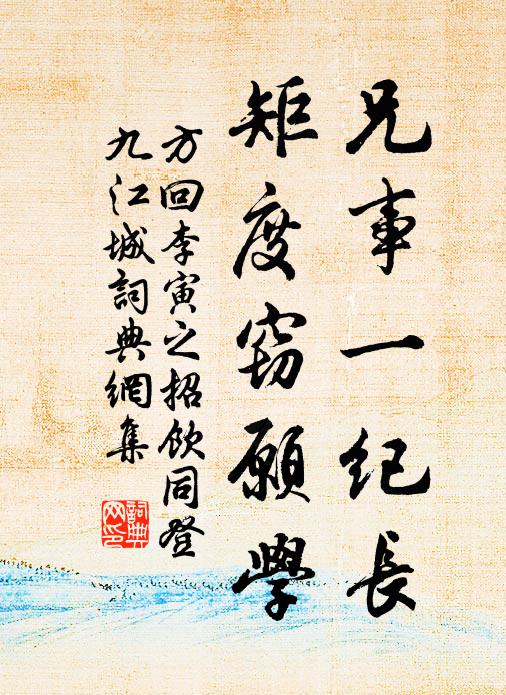 兄事一纪長
矩度窃願學
方回李寅之招飲同登
九江城詞典網集
詞典
网印